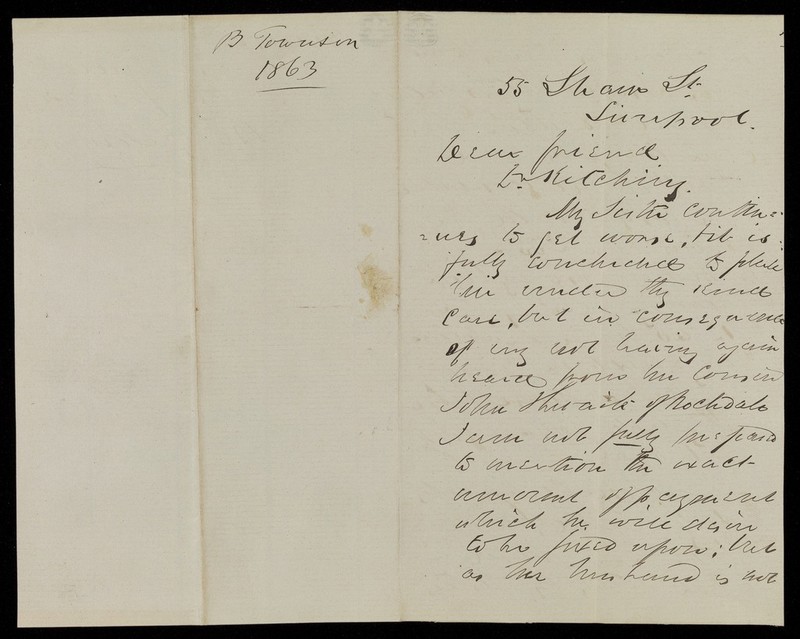 B Townson
1863
55 Shaw St.
Liverpool.
Dear friend
Dr Kitching.
My Sister contin=
=ues to get worse, & it is
fully concluded to place
her under thy kind
care, but in consequence
of my not having again
heard from her Cousin
John Thwaite of Rochdale
I am not fully prepared
to mention the exact
amount of payment
which he will desire
to be fixed upon; but
as her husband is not